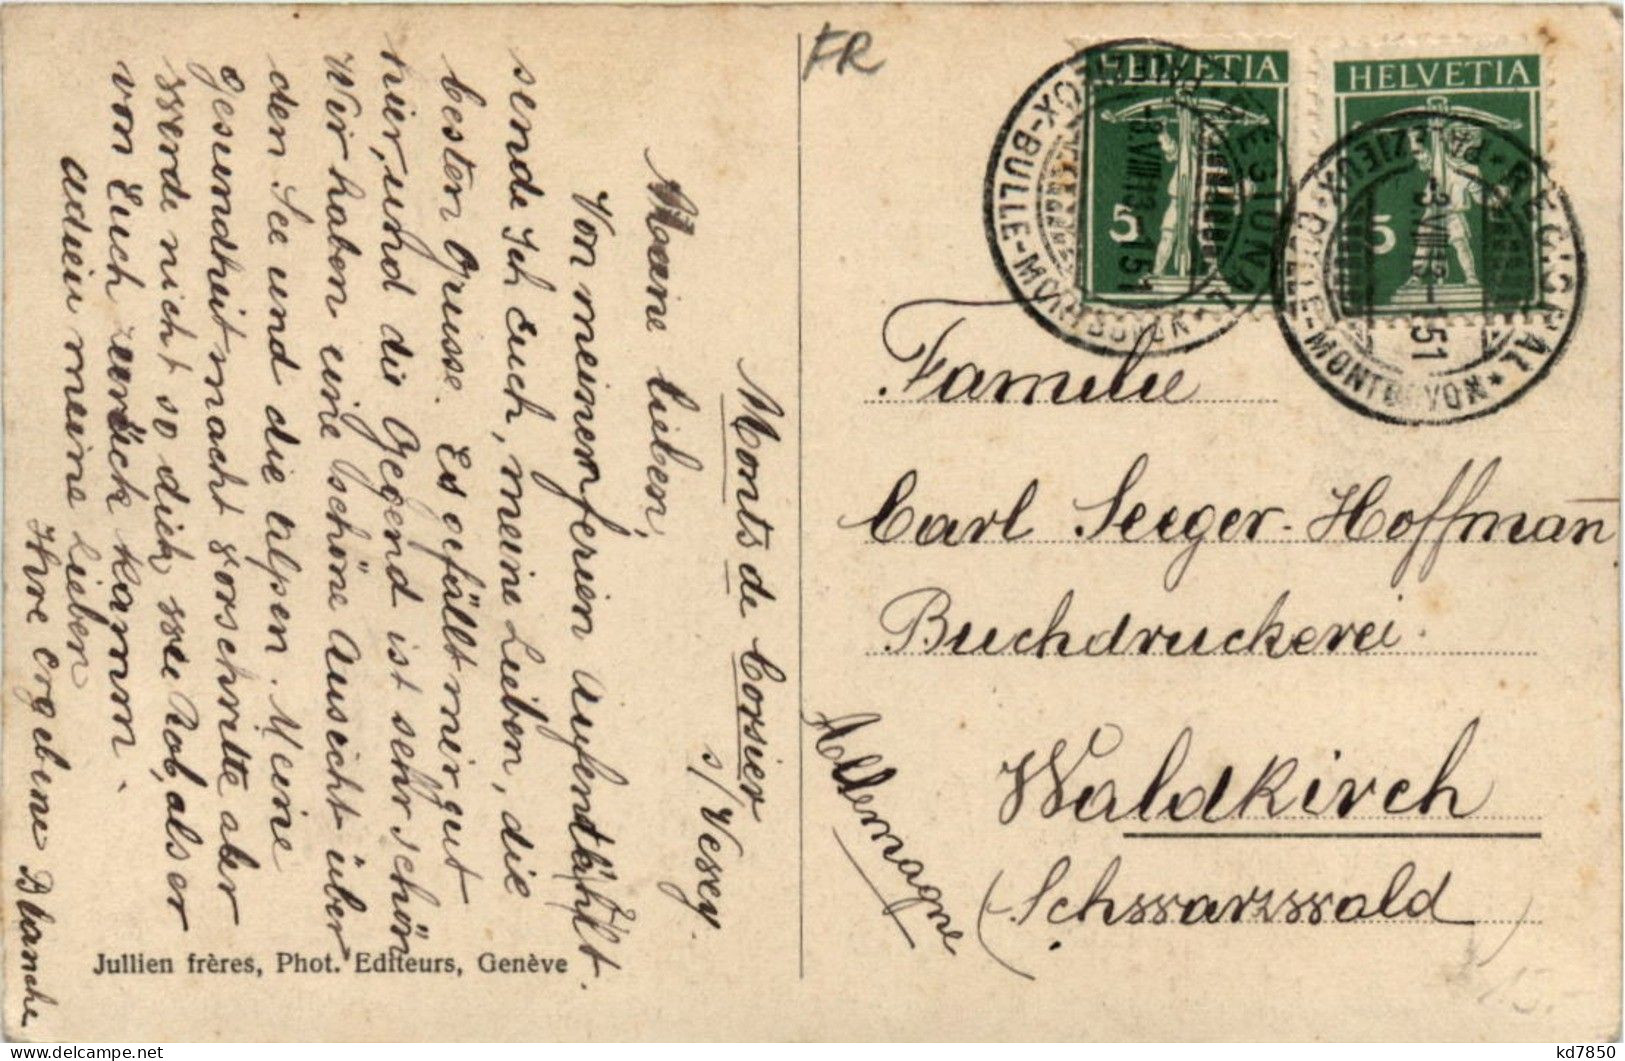 Monts de Corsier
s/Vevey.
Meine lieben,
Von meinen ferien aufenthält
sende Ich Euch, meine Lieben, die
besten Grüsse. Es gefällt mir gut
hier, und die Gegend ist sehr schön
Wir haben eine schöne Aussicht über
den See und die Alpen. Meine
Gesundheit macht vorschritte aber
werde nicht so dick, wie Rob, als er
von Euch zurück kamm.
adieu meine Lieben
Ihre ergebene Blanche
Jullien frères, Phot. Editeurs, Genève
FR
HELVETIA
5
HELVETIA
5
REGIONAL
PALEZIEUX-BULLE-MONTBOVON
-3.VIII.13- 151
REGIONAL
PALEZIEUX-BULLE-MONTBOVON
-3.VIII.13- 151
Familie
Carl Seeger-Hoffmañ
Buchdruckerei.
Waldkirch
(Schwarzwald)
Allemagne
15.-
kd7850